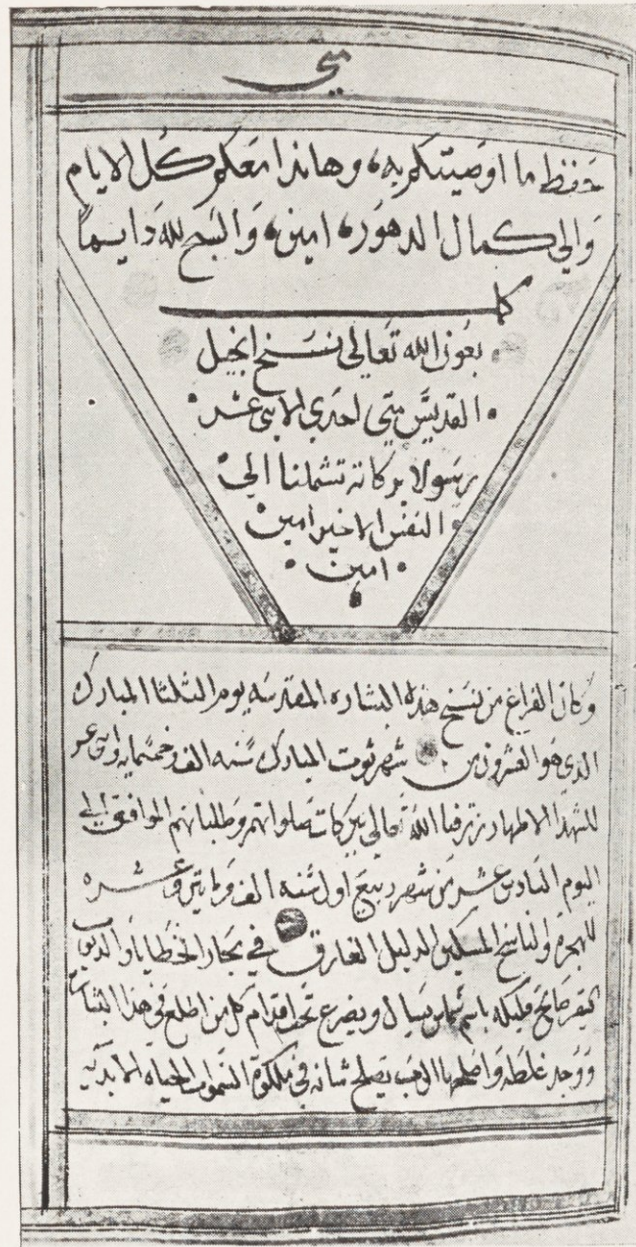 متي
حفظ ما اوصيتكم به، وهانذا معكم كل الايام
والي كمال الدهور، امين، والسبح لله دايما
كمل
بعون الله تعالي نسخ انجيل
القديس متي احدي الاثني عشر
رسولا بركاته تشملنا الي
النفس الاخير امين
امين
وكان الفراغ من نسخ هذه البشاره المقدسه يوم الثلثا المبارك
الذي هو العشرون من شهر توت المبارك سنه الف وخمسمايه واثني عشر
للشهدا الاطهار رزقنا الله تعالي بركات صلواتهم وطلباتهم الموافق الي
اليوم السادس عشر من شهر ربيع اول سنه الف ومايتين وعشره
للهجرة والناسخ المسكين الدليل الغارق في بحار الخطايا والذنوب
باسم شماس يسال ويضرع تحت اقدام كل من اطلع في هذا
ووجد غلطه واصلحها الرب يصلح شانه في ملكوة السموات الحياه الابديه